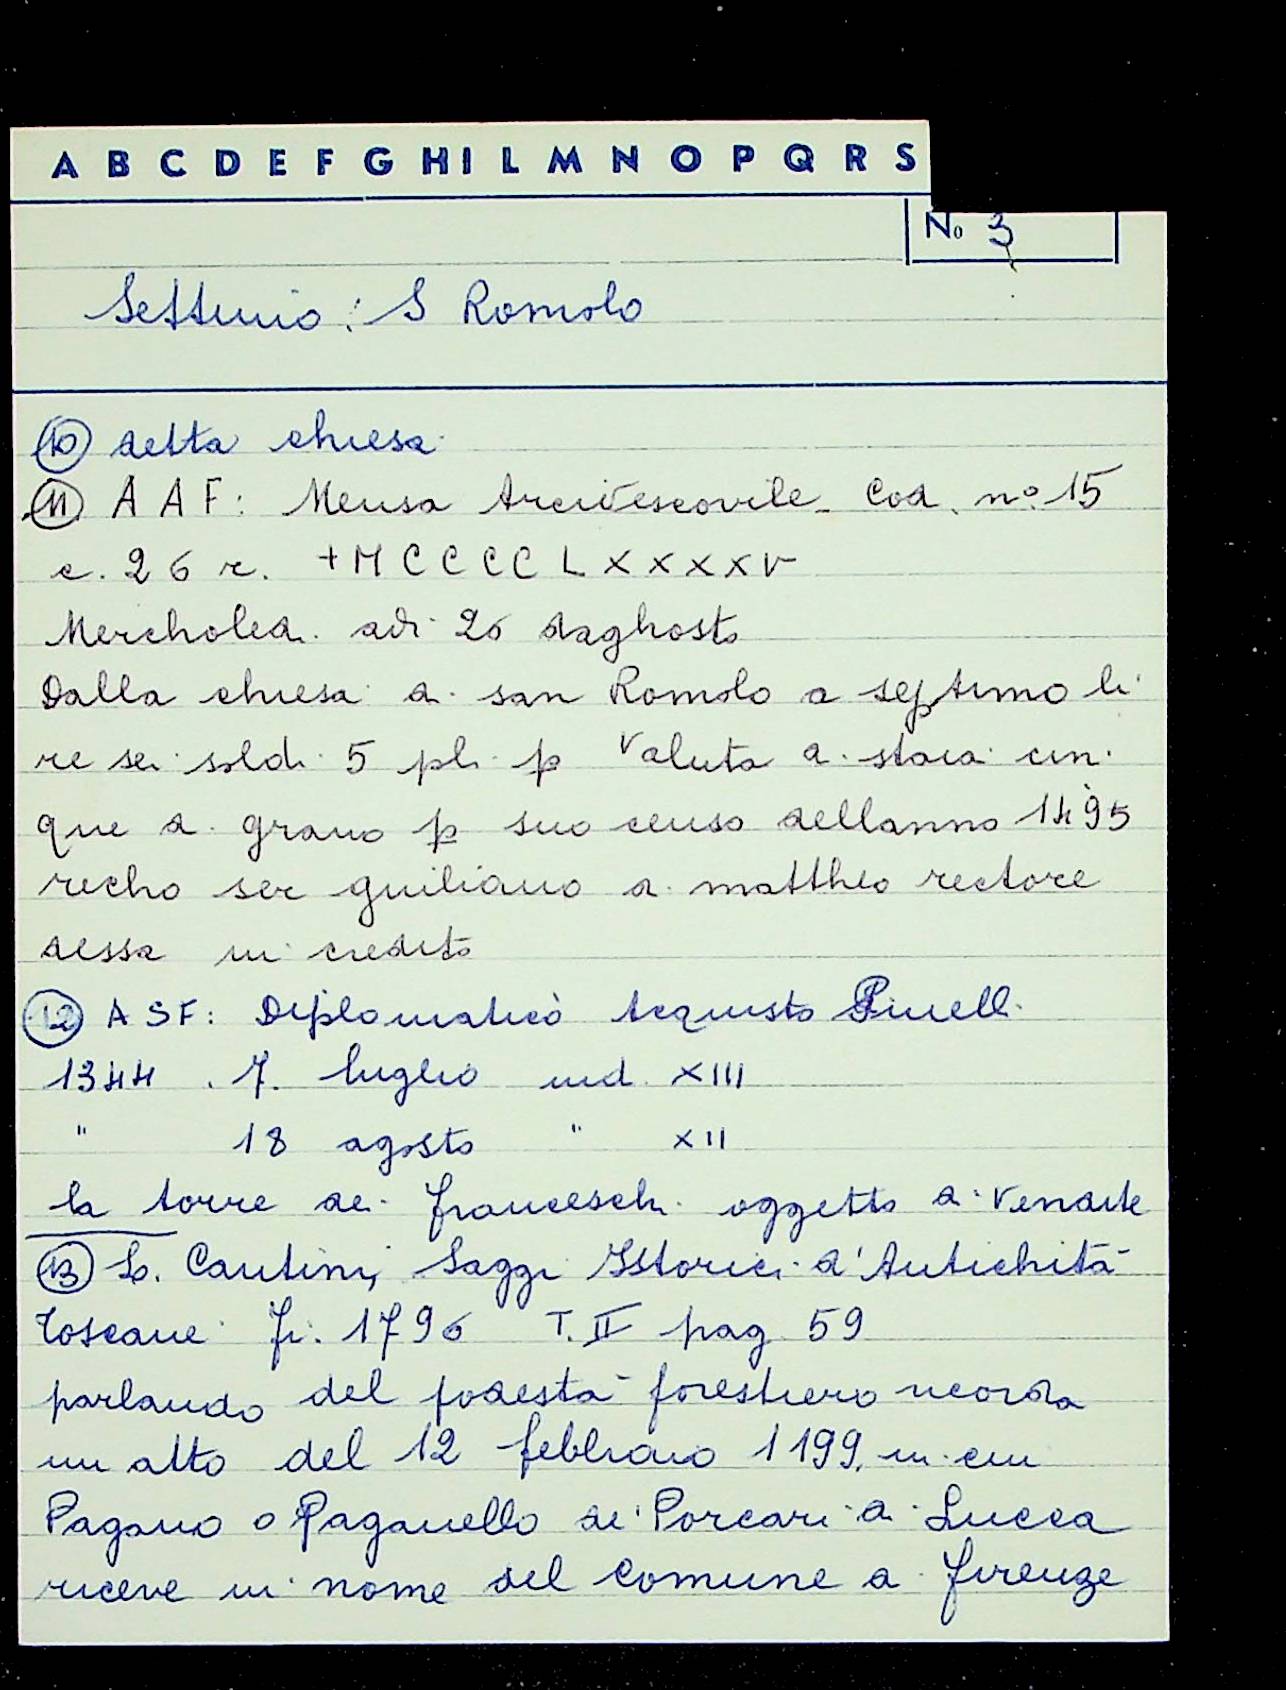 A B C D E F G H I L M N O P Q R S
No 3
Settimo: S Romolo
⑩ detta chiesa
⑪ A A F: Mensa Arcivescovile Cod. n° 15
c. 26 r. + M C C C C L X X X X V
Mercholedi adi 26 daghosto
Dalla chiesa di san Romolo a septimo li
re sei soldi 5 pli p valuta di staia cin
que di grano p suo censo dellanno 1495
recho ser guiliano di mattheo rectore
dessa in credito
⑫ A S F: Diplomatico Acquisto Pinelli
1344 . 7. luglio ind. XIII
" 18 agosto " XII
la torre dei franceschi oggetto di vendite
⑬ Lo. Cantini, Saggi Istorici d'Antichità
Toscane fi. 1796 T. II pag. 59
parlando del podestà forestiero ricorda
un atto del 12 febbraio 1199, in cui
Pagano o Paganello dei Porcari di Lucca
riceve in nome del comune di firenze